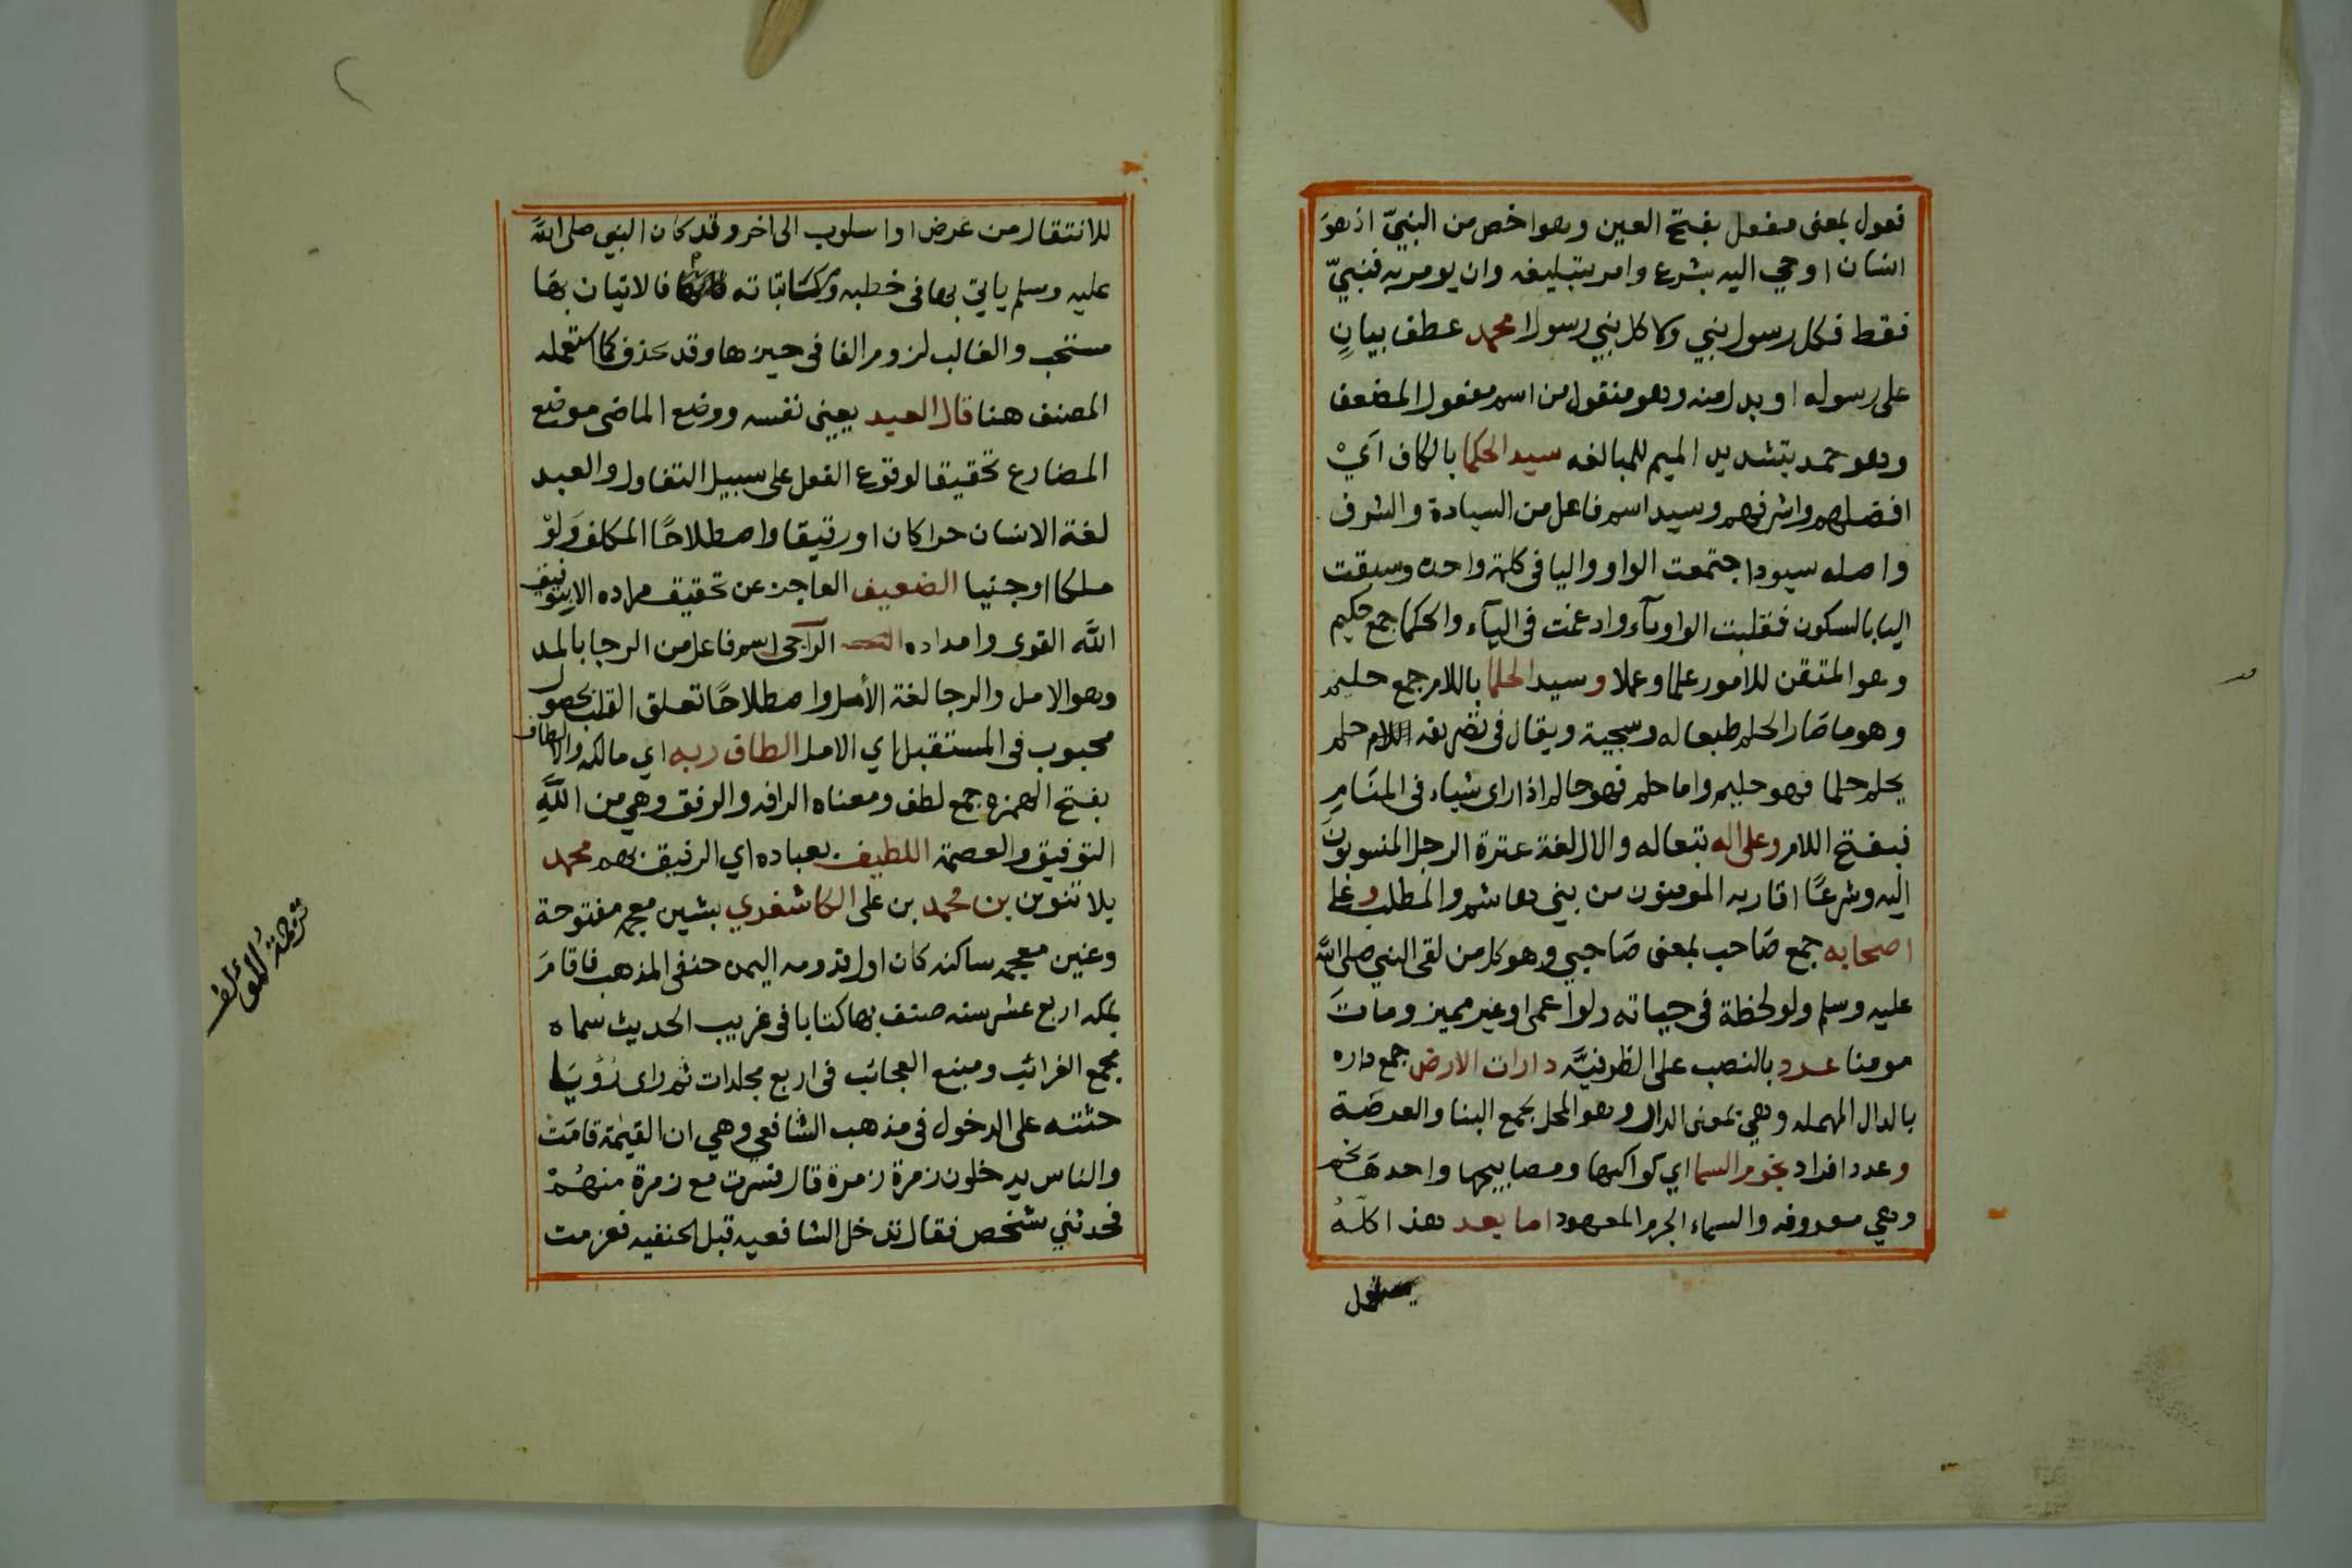 فعول بمعنى مفعل بفتح العين وهو اخص من النبيّ اذ هوَ
انسان اوحي اليه بشرع وامر بتبليغه وان لم يومر به فنبيّ
فقط فكل رسول نبي ولا كل نبي رسولا محمد عطف بيانٍ
على رسوله او بدل منه وهو منقول من اسم مفعول المضعف
وهو حمد بتشديد الميم للمبالغه سيد الحكما بالكاف اَيْ
افضلهم واشرفهم وسيد اسم فاعل من السيادة والشرف
واصله سيود اجتمعت الواو واليا في كلمة واحده وسبقت
اليا بالسكون فقلبت الواو يآء وادغمت في اليآء والحكما جمع حكيم
وهو المتقن للامور علما وعملا وسيد الحلما باللام جمع حليم
وهو ما صَار الحلم طبعا له وسجية ويقال في تصريفه حلم
يحلم حلما فهو حليم واما حلم فهو حالم اذا راى شياء في المنَامِ
فبفتح اللام وعلى اله تبعا له والال لغة عترة الرجل المنسوبونَ
اليه وشرعًا اقاربه المومنون من بني هاشم والمطلب وعلى
اصحابه جمع صَاحب بمعنى صَاحبي وهو كل من لقى النبي صلى اللَّه
عليه وسلم ولو لحظة في حياته ولو اعمى او غير مميز ومات
مومنا عدد بالنصب على الظرفيَّه دارات الارض جمع داره
بالدال المهمله وهي بمعنى الدار وهو المحل يجمع البنا والعرصَة
وعدد افراد نجوم السما اي كواكبها ومصابيحها واحدهَا نجم
وهي معروفه والسماء الجرم المعهود اما بعد هذا كلّهُ
للانتقال من غرض او اسلوب الى اخر وقد كان النبي صلى اللَّه
عليه وسلم ياتي بها في خطبه ومكتاباته فالاتيان بهَا
مستحب والغالب لزوم الفا في حيزها وقد تحذف كما استعمله
المصنف هنا قال العبد يعني نفسه ووضع الماضي موضع
المضارع تحقيقا لوقوع الفعل على سبيل التفاول والعبد
لغة الانسان حرا كان او رقيقا واصطلاحًا المكلف وَلَوْ
ملكا او جنيا الضعيف العاجز عن تحقيق مراده الا بتوفيق
اللَّه القوى وامداده الرآجى اسم فاعل من الرجا بالمد
وهو الامل والرجا لغة الأمل واصطلاحًا تعلق القلب بحصول
محبوب في المستقبل اي الامل الطاف ربه اي مالكه والالطاف
بفتح الهمزه جمع لطف ومعناه الرافه والرفق وهي من اللَّهِ
التوفيق والعصمة اللطيف بعباده اي الرفيق بهم محمد
بلا تنوين بن محمد بن على الكاشغري بشين معجمه مفتوحة
وغين معجمه ساكنه كان اول قدومه اليمن حنفي المذهب فاقامَ
بمكه اربع عشر سنه صنف بها كتابا في غريب الحديث سماه
مجمع الغرائب ومنبع العجائب في اربع مجلدات ثم راى رُؤيَا
حثته على الدخول في مذهب الشافعي وهي ان القيٰمة قامَتْ
والناس يدخلون زمرة زمرة قال فسرت مع زمرة منهُمْ
فجدثني شخص فقال تدخل الشافعيه قبل الحنفيه فعزمت
ترجمة المُؤلف